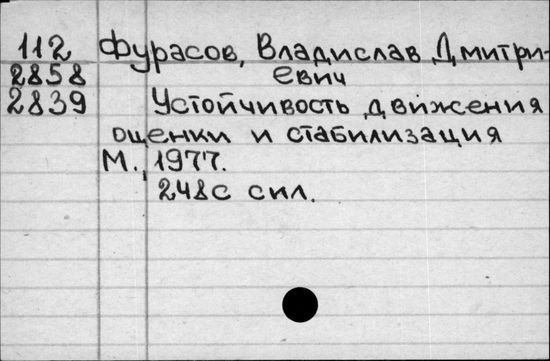 112 Фурасов, Владислав Дмитри-
2858 евич
2839 Устойчивость движения
оценки и стабилизация
М., 1977.
248с сил.